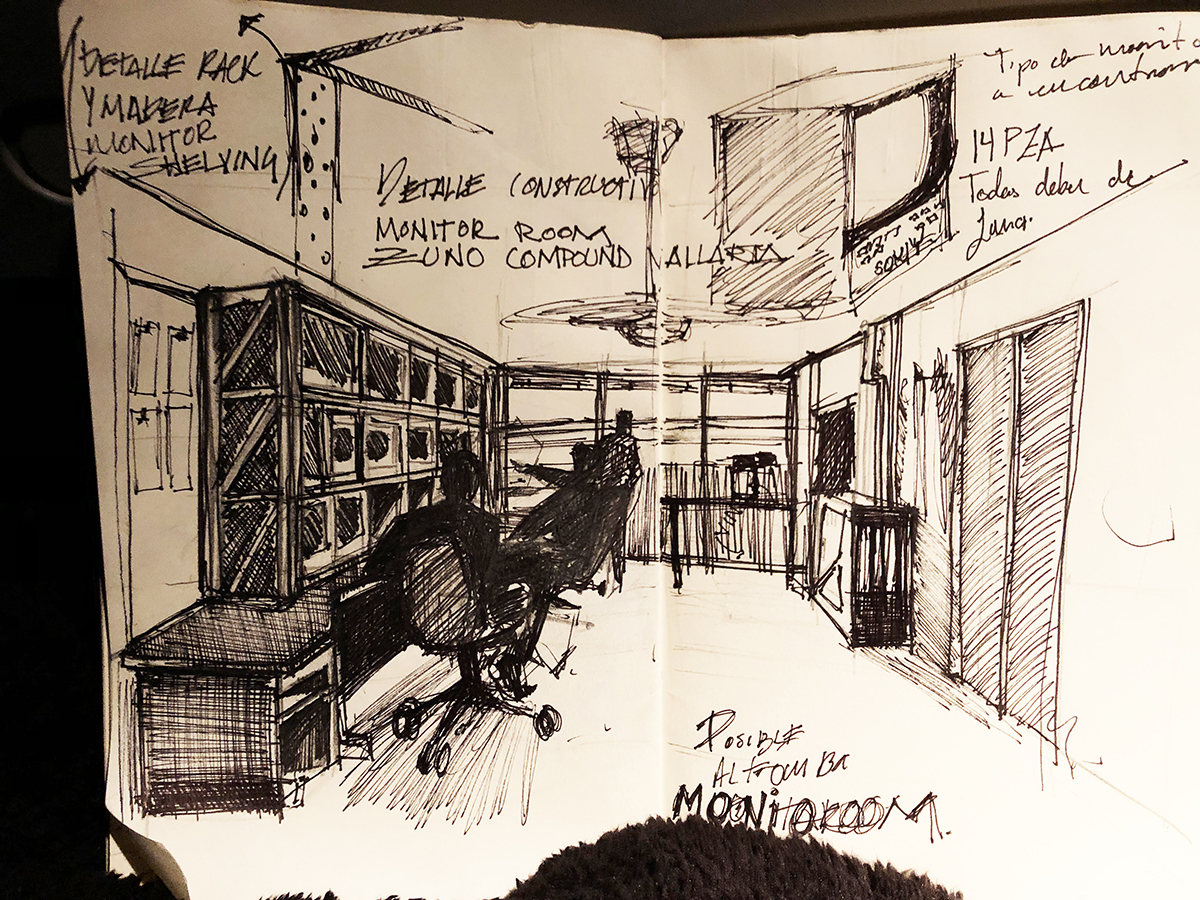 DETALLE RACK
Y MADERA
MONITOR
SHELVING
DETALLE CONSTRUCTIV
MONITOR ROOM
ZUNO COMPOUND VALLARTA
Tipo de monito
a encontrar
14 PZA
Todas deben de
POSIBLE
ALFOMBRA
MONITOROOM.